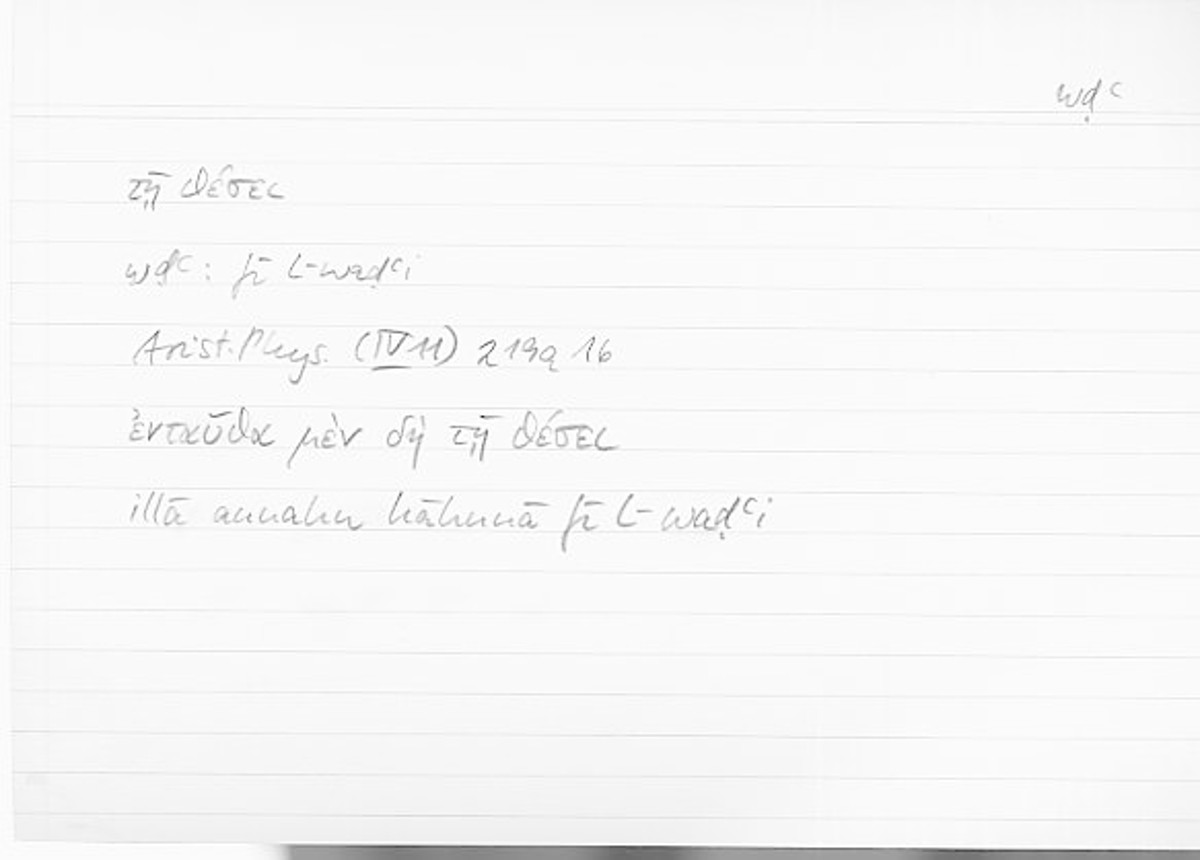 wḍʿ
τῇ θέσει
wḍʿ: fī l-waḍʿi
Arist. Phys. (IV 11) 219a 16
ἐνταῦθα μὲν δὴ τῇ θέσει
illā annahu hāhunā fī l-waḍʿi